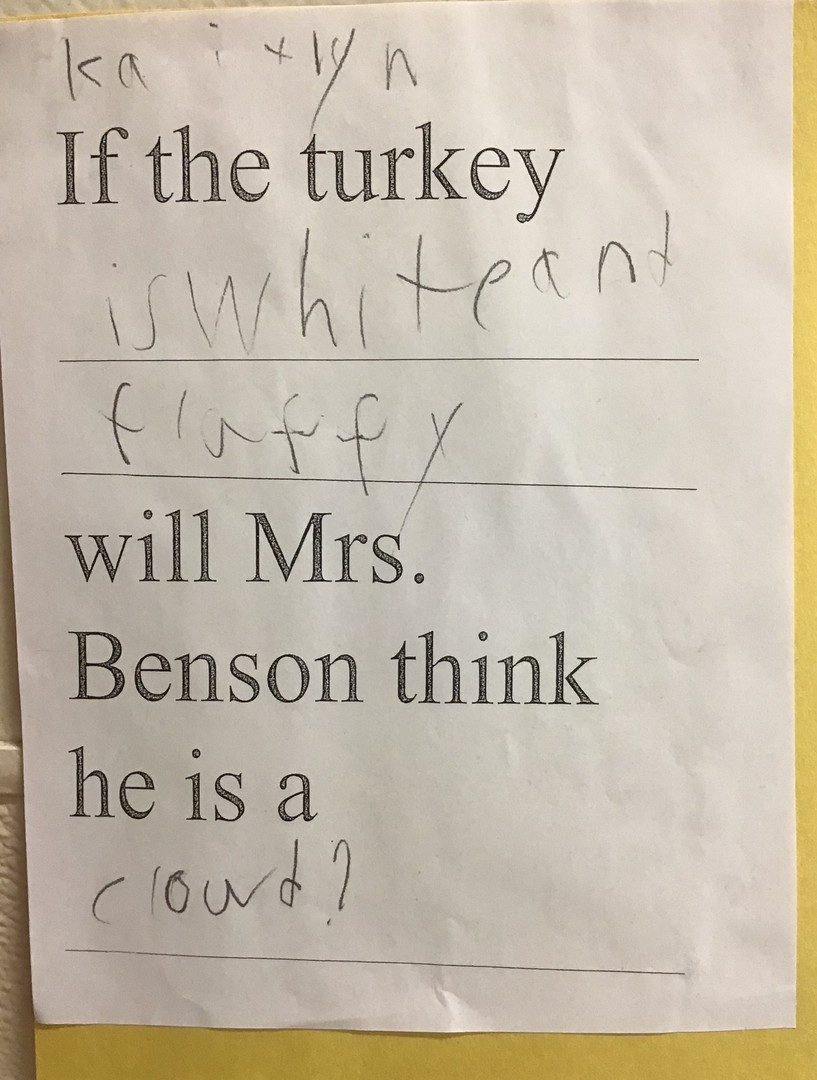 kaitlyn
If the turkey
is white and
fluffy
will Mrs.
Benson think
he is a
clowd?